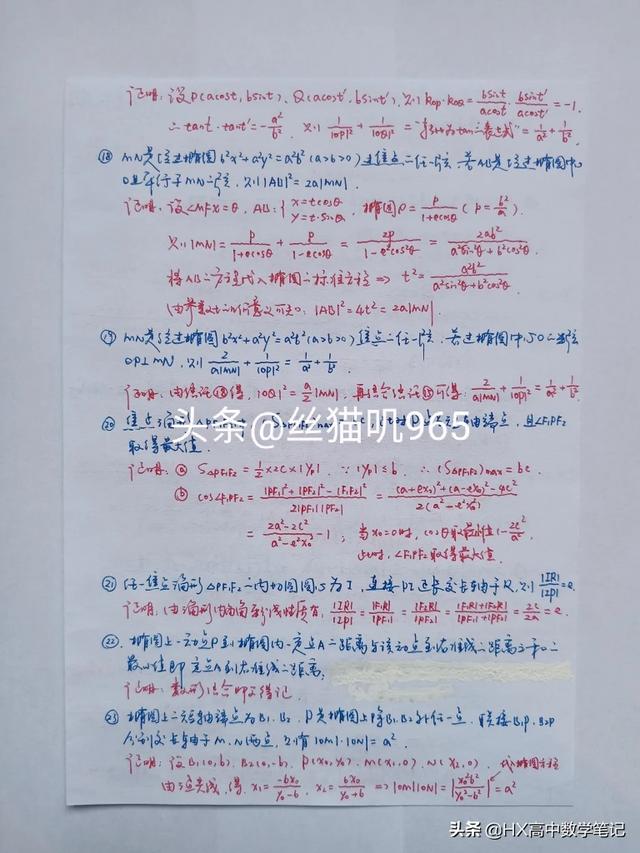 证明: 设P(acost, bsint)、Q(acost', bsint'), 则 kop·koQ = bsint/acost · bsint'/acost' = -1,
∴ tant·tant' = -a²/b². 又 1/|OP|² + 1/|OQ|² = = 1/a² + 1/b².
⑱ MN是经过椭圆 b²x²+a²y²=a²b² (a>b>0) 过焦点的任一弦, 若AB是经过椭圆中心
O且平行于MN的弦, 则 |AB|² = 2a|MN|.
证明: 设∠MFX=θ, AB: { x=tcosθ y=t·sinθ , 椭圆ρ = p/(1+ecosθ) (p = b²/a).
则 |MN| = p/(1+ecosθ) + p/(1-ecosθ) = 2p/(1-e²cos²θ) = 2ab²/(a²sin²θ+b²cos²θ).
将AB的方程代入椭圆的标准方程 => t² = a²b²/(a²sin²θ+b²cos²θ)
由参数t的几何意义可知: |AB|² = 4t² = 2a|MN|.
⑲ MN是经过椭圆 b²x²+a²y²=a²b² (a>b>0) 焦点的任一弦, 若过椭圆中心O的半弦
OP⊥MN, 则 2/(a|MN|) + 1/|OP|² = 1/a² + 1/b².
证明: 由结论⑱得, |OQ|² = a/2 |MN|, 再结合结论可得: 2/(a|MN|) + 1/|OP|² = 1/a² + 1/b².
头条@丝猫叽965
⑳ 焦点三角形 短轴端点, 且∠F₁PF₂
取得最大值.
证明: ⓐ S△PF₁F₂ = 1/2 × 2c × |yp|. ∵ |yp| ≤ b. ∴ (S△PF₁F₂)max = bc.
ⓑ cos∠F₁PF₂ = (|PF₁|²+|PF₂|²-|F₁F₂|²)/(2|PF₁||PF₂|) = ((a+ex₀)²+(a-ex₀)²-4c²)/(2(a²-e²x₀²))
= (2a²-2c²)/(a²-e²x₀²) - 1; 当x₀=0时, cosθ取最小值 1-2c²/a²,
此时, ∠F₁PF₂取得最大值.
㉑ 任一焦点三角形△PF₁F₂的内切圆圆心为I, 连接PI延长交长轴于R, 则 |IR|/|IP| = e.
证明: 由三角形内角角平分线性质有, |IR|/|IP| = |F₁R|/|PF₁| = |F₂R|/|PF₂| = (|F₁R|+|F₂R|)/(|PF₁|+|PF₂|) = 2c/2a = e.
㉒ 椭圆上一动点P到椭圆内一定点A的距离与该动点到右准线的距离之和的
最小值即定点A到右准线的距离;
证明: 数形结合即可得证.
㉓ 椭圆上的短轴端点为B₁、B₂, P是椭圆上除B₁、B₂外任一点, 联接B₁P、B₂P
分别交长轴于M、N两点, 则有 |OM|·|ON| = a².
证明: 设B₁(0,b)、B₂(0,-b)、P(x₀,y₀)、M(x₁,0)、N(x₂,0). 代入椭圆方程
由三点共线, 得 x₁ = -bx₀/(y₀-b), x₂ = bx₀/(y₀+b) => |OM||ON| = |x₀²b²/(y₀²-b²)| = a²
头条 @HX高中数学笔记